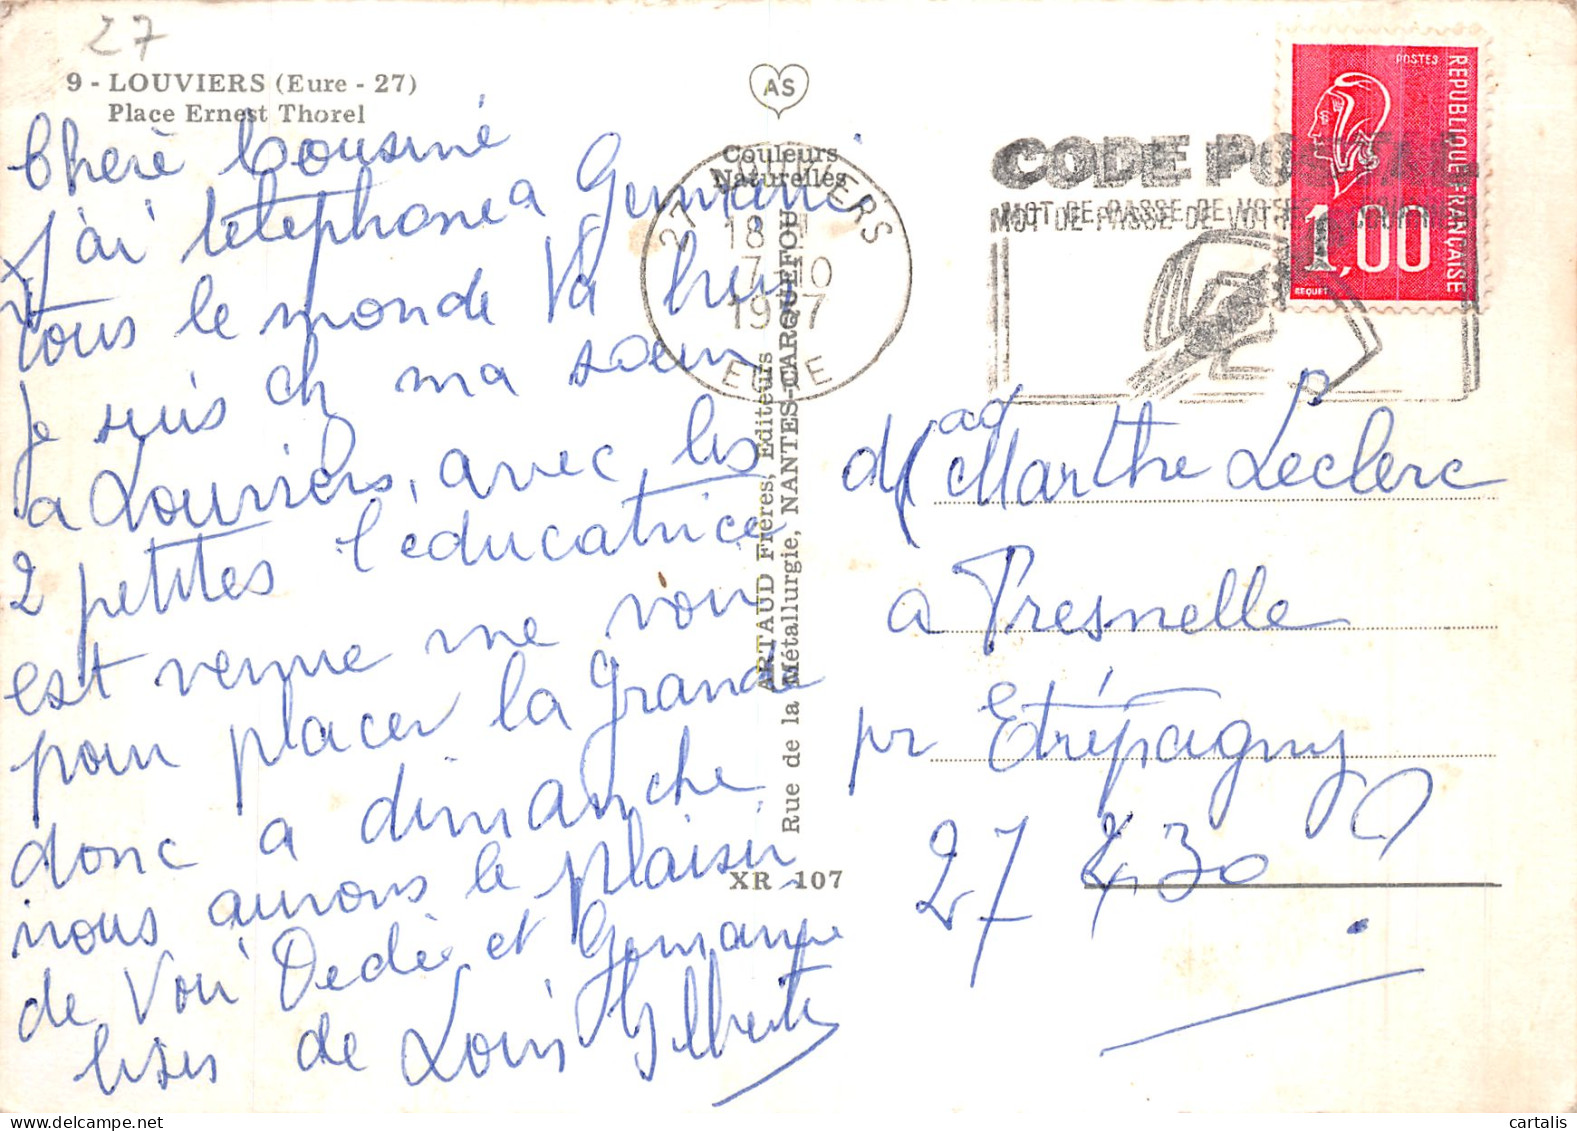 27
9 - LOUVIERS (Eure - 27)
Place Ernest Thorel
AS
Couleurs
Naturelles
27 LOUVIERS
18 H
7 - 10
1977
EURE
CODE POSTAL
MOT DE PASSE DE VOTRE COURRIER
POSTES
REPUBLIQUE FRANÇAISE
1,00
BEQUET
Chère Cousine
J'ai téléphone a Germaine
tous le monde Va bien
Je suis ch ma sœur
a Louviers, avec les
2 petites l'educatrice
est venue me voir
pour placer la grande
donc a dimanche
nous aurons le plaisir
de Voir Dedée et Germaine
bises de Louis Gilberte
ARTAUD Frères, Editeurs
Rue de la Métallurgie, NANTES-CARQUEFOU
XR 107
Marthe Leclerc
à Presnelle
pr Etrépagny
27 430
cartalis